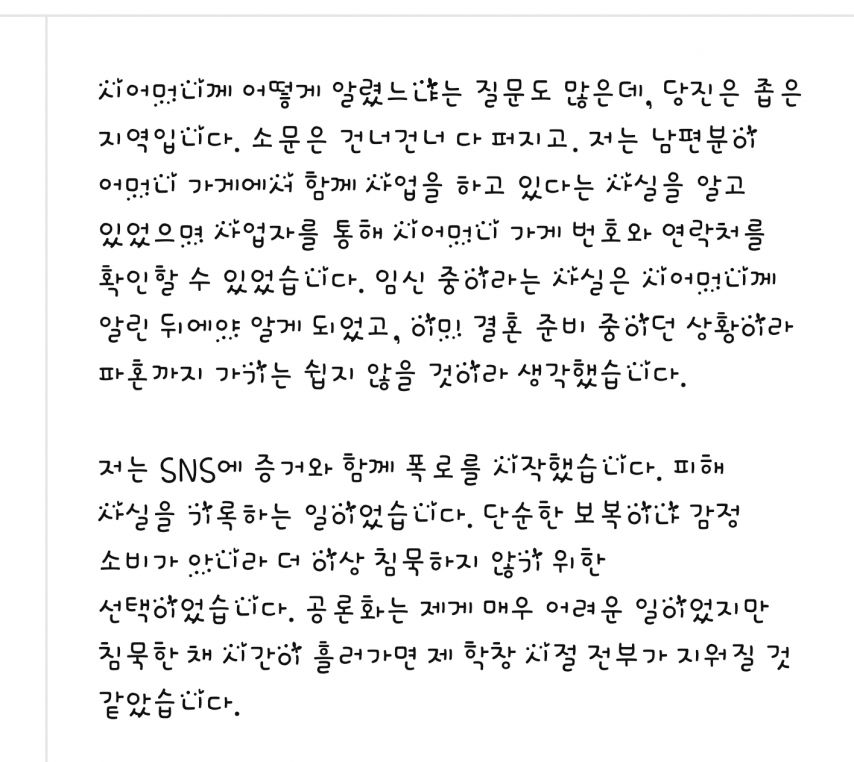 시어머니께 어떻게 알렸느냐는 질문도 많은데, 당진은 좁은
지역입니다. 소문은 건너건너 다 퍼지고. 저는 남편분이
어머니 가게에서 함께 사업을 하고 있다는 사실을 알고
있었으며 사업자를 통해 시어머니 가게 번호와 연락처를
확인할 수 있었습니다. 임신 중이라는 사실은 시어머니께
알린 뒤에야 알게 되었고, 이미 결혼 준비 중이던 상황이라
파혼까지 가기는 쉽지 않을 것이라 생각했습니다.

저는 SNS에 증거와 함께 폭로를 시작했습니다. 피해
사실을 기록하는 일이었습니다. 단순한 보복이나 감정
소비가 아니라 더 이상 침묵하지 않기 위한
선택이었습니다. 공론화는 제게 매우 어려운 일이었지만
침묵한 채 시간이 흘러가면 제 학창 시절 전부가 지워질 것
같았습니다.